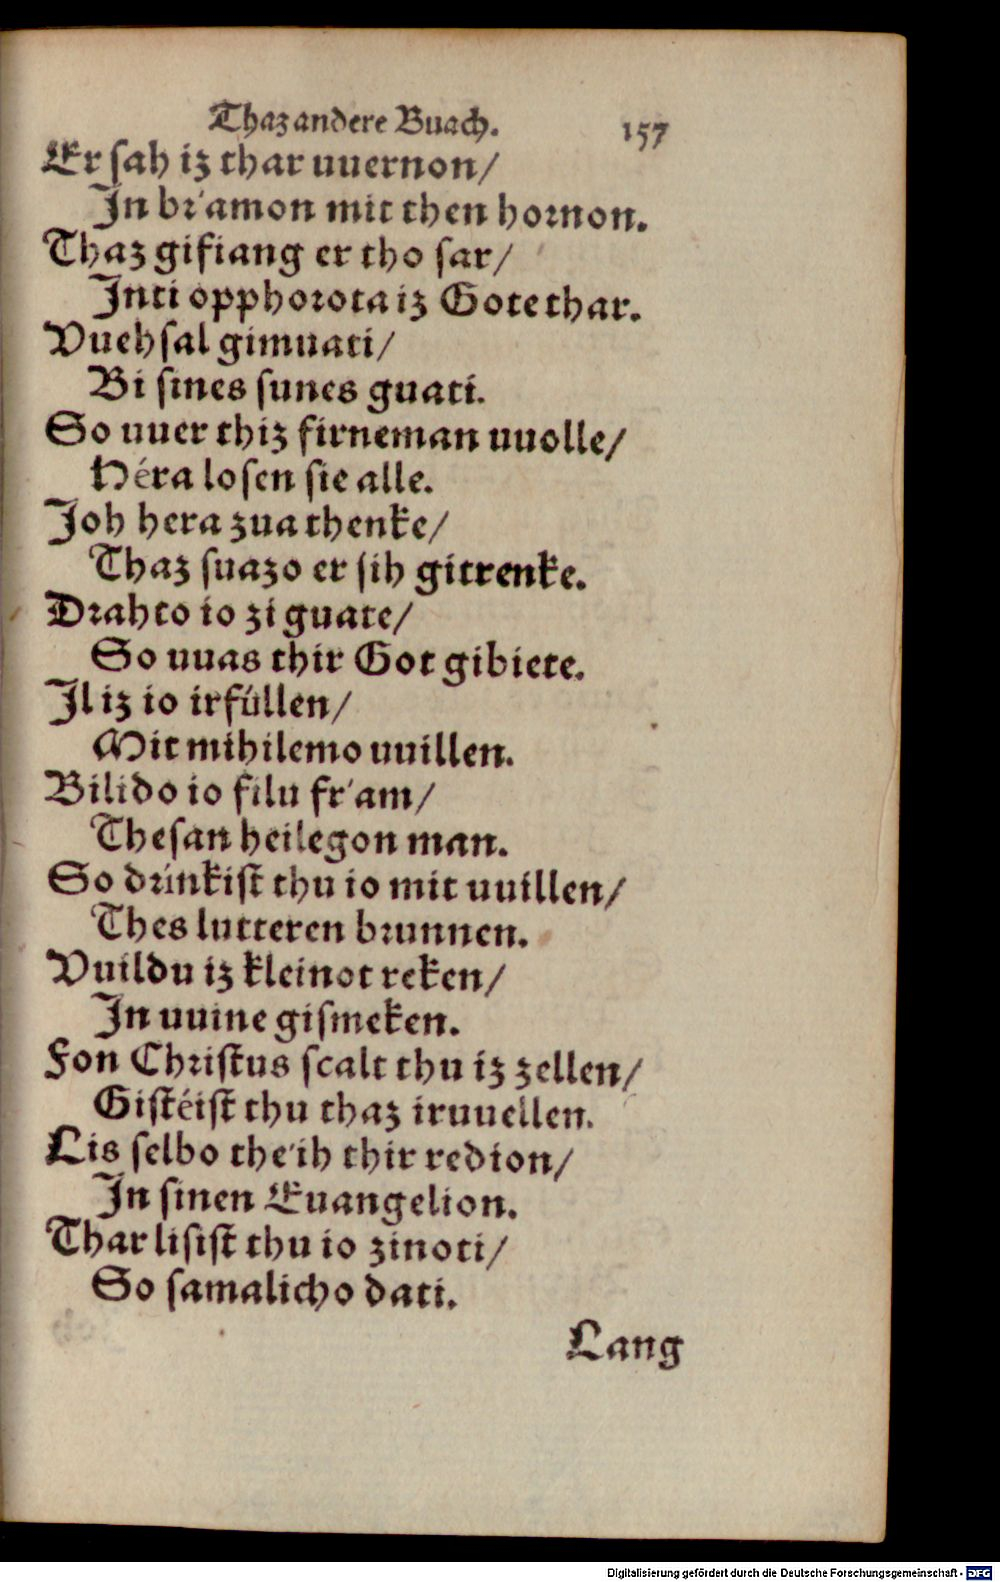 Thaz andere Buach. 157
Er ſah iz thar uuernon/
In br'amon mit then hornon.
Thaz gifiang er tho ſar/
Inti opphorota iz Gote thar.
Vuehſal gimuati/
Bi ſines ſunes guati.
So uuer thiz firneman uuolle/
Héra loſen ſie alle.
Joh hera zua thenke/
Thaz ſuazo er ſih gitrenke.
Drahto io zi guate/
So uuas thir Got gibiete.
Il iz io irfúllen/
Mit mihilemo uuillen.
Bilido io filu fr'am/
Theſan heilegon man.
So drinkiſt thu io mit uuillen/
Thes lutteren brunnen.
Vuildu iz kleinot reken/
In uuine giſmeken.
Fon Chriſtus ſcalt thu iz zellen/
Giſtéiſt thu thaz iruuellen.
Lis ſelbo the'ih thir redion/
In ſinen Euangelion.
Thar liſiſt thu io zinoti/
So ſamalicho dati.
Lang
Digitalisierung gefördert durch die Deutsche Forschungsgemeinschaft - DFG